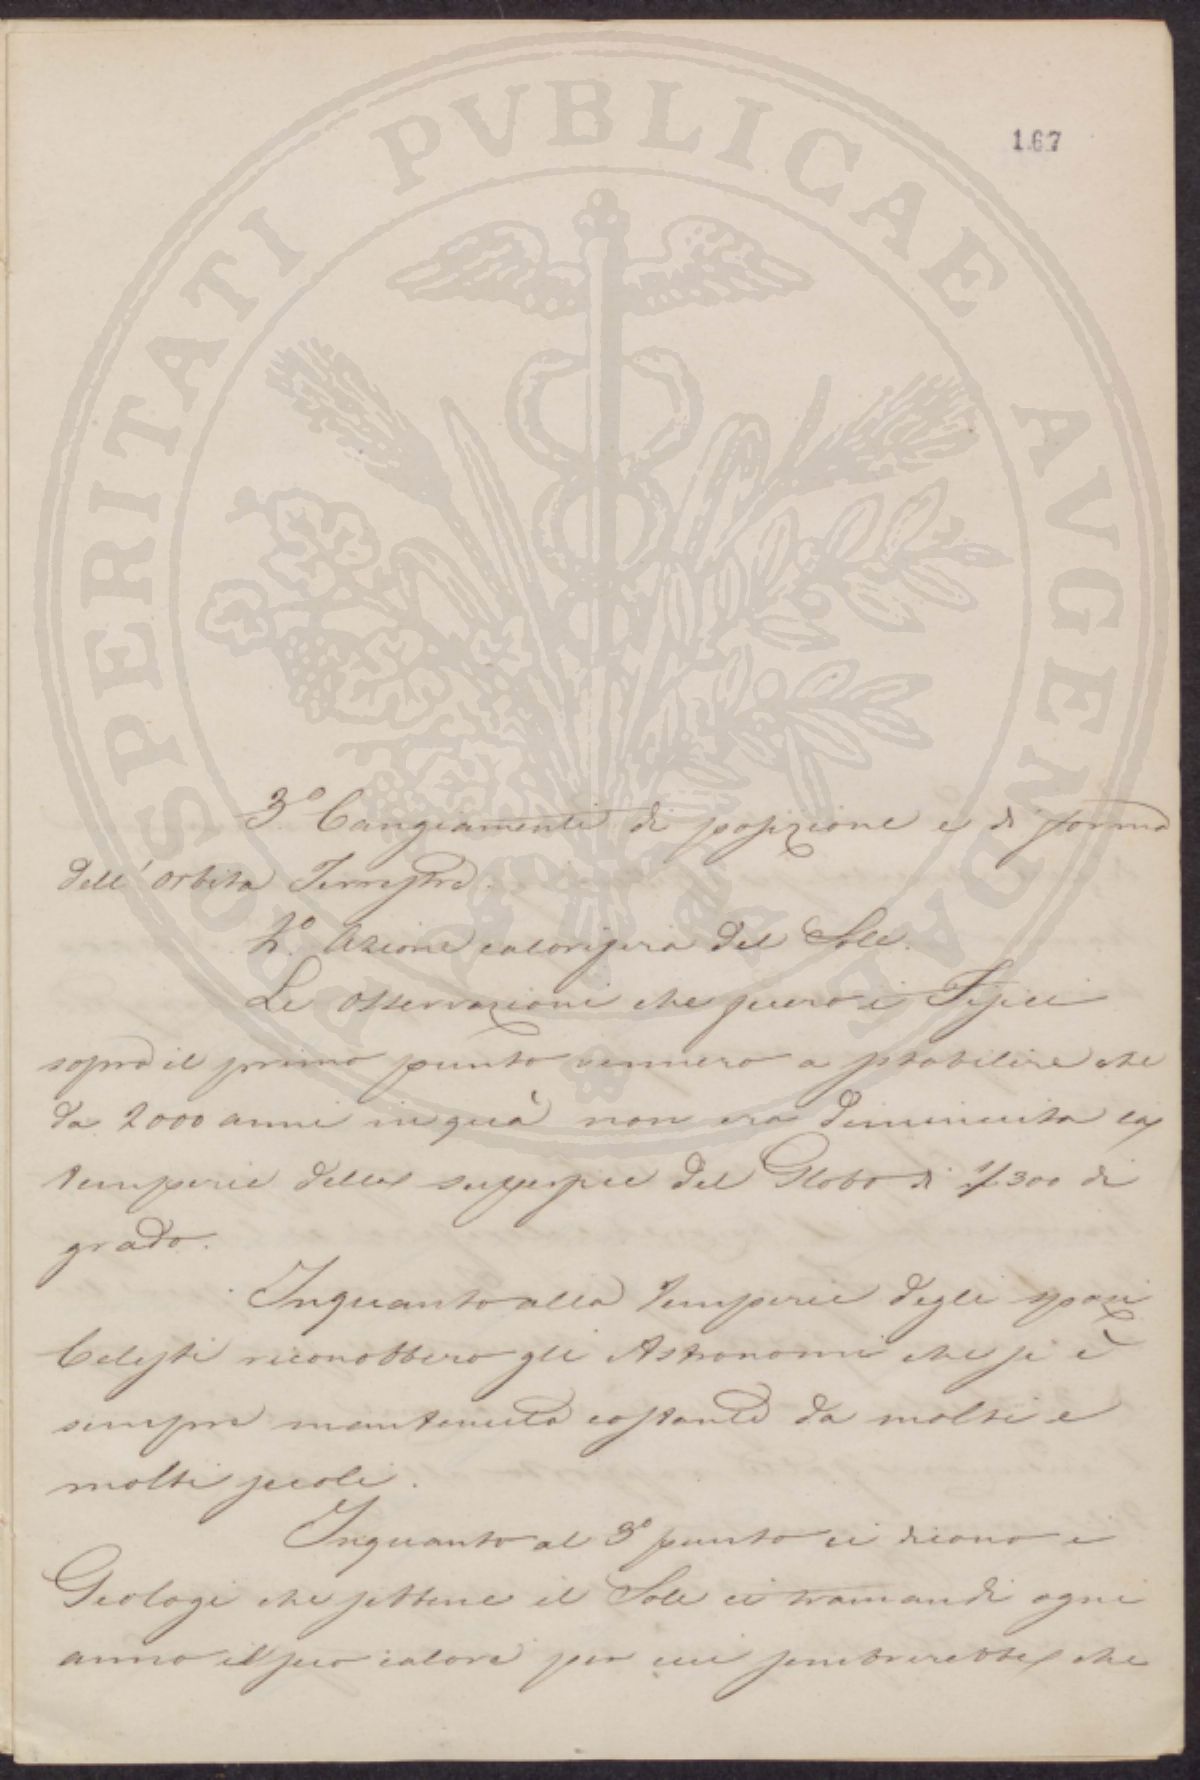 PROSPERITATI PVBLICAE AVGENDAE
167
3.º Cangiamenti di posizione e di forma
dell'orbita Terrestre.
4.º Azione calorifera del Sole.
Le osservazioni che fecero i Fisici
sopra il primo punto vennero a stabilire che
da 2000 anni in quà non era diminuita la
temperie della superficie del Globo di 1/300 di
grado.
Inquanto alla temperie degli spazi
Celesti riconobbero gli Astronomi che si è
sempre mantenuta costante da molti e
molti secoli.
Inquanto al 3º punto ci dicono i
Geologi che sebbene il Sole ci tramandi ogni
anno il suo calore per cui sembrerebbe che